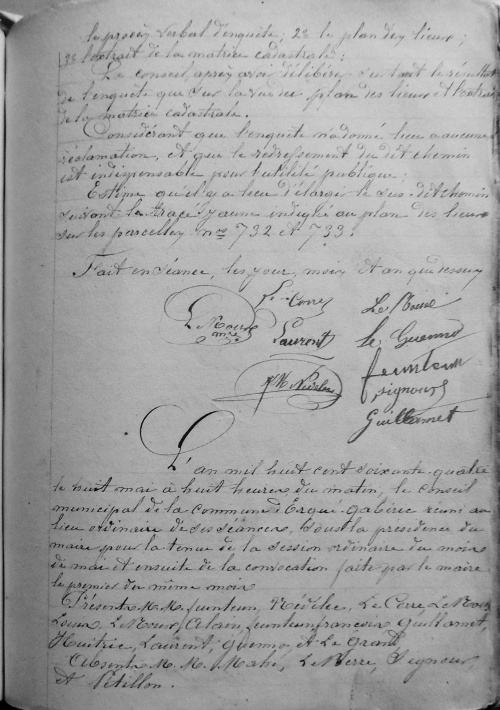 le procès verbal d'enquête; 2° le plan des lieux;
3° l'extrait de la matrice cadastrale;
Le conseil après avoir délibéré sur tant le résultat
de l'enquête que sur la vue des plan des lieux et l'extrait
de la matrice cadastrale.
Considérant que l'enquête n'a donné lieu a aucune
réclamation, et que le redressement du dit chemin
est indispensable pour l'utilité publique;
Estime qu'il y a lieu d'élargir le sus-dit chemin
suivant le tracé jaune indiqué au plan des lieux
sur les parcelles nos 732 et 733.
Fait en séance, les jour, mois et an que dessus
Le Corre Le Roux
Le Roux
maire
Laurent Le Guenno
feunteun
signour
Guillamet
L'an mil huit cent soixante-quatre
le huit mai à huit heures du matin, le conseil
municipal de la commune d'Ergué-Gabéric réuni au
lieu ordinaire de ses séances, sous la présidence du
maire pour la tenue de la session ordinaire du mois
de mai et ensuite de la convocation faite par le maire
le premier du même mois
Présents M.M. feunteun, Nédélec, Le Corre Le Roux
Louis, Le Roux Alain, feunteun françois Guillamet,
Huitric, Laurent, Guenno, et Le Grand,
Absents M. M. Mahé, Le Berre, Signour,
et Pétillon.